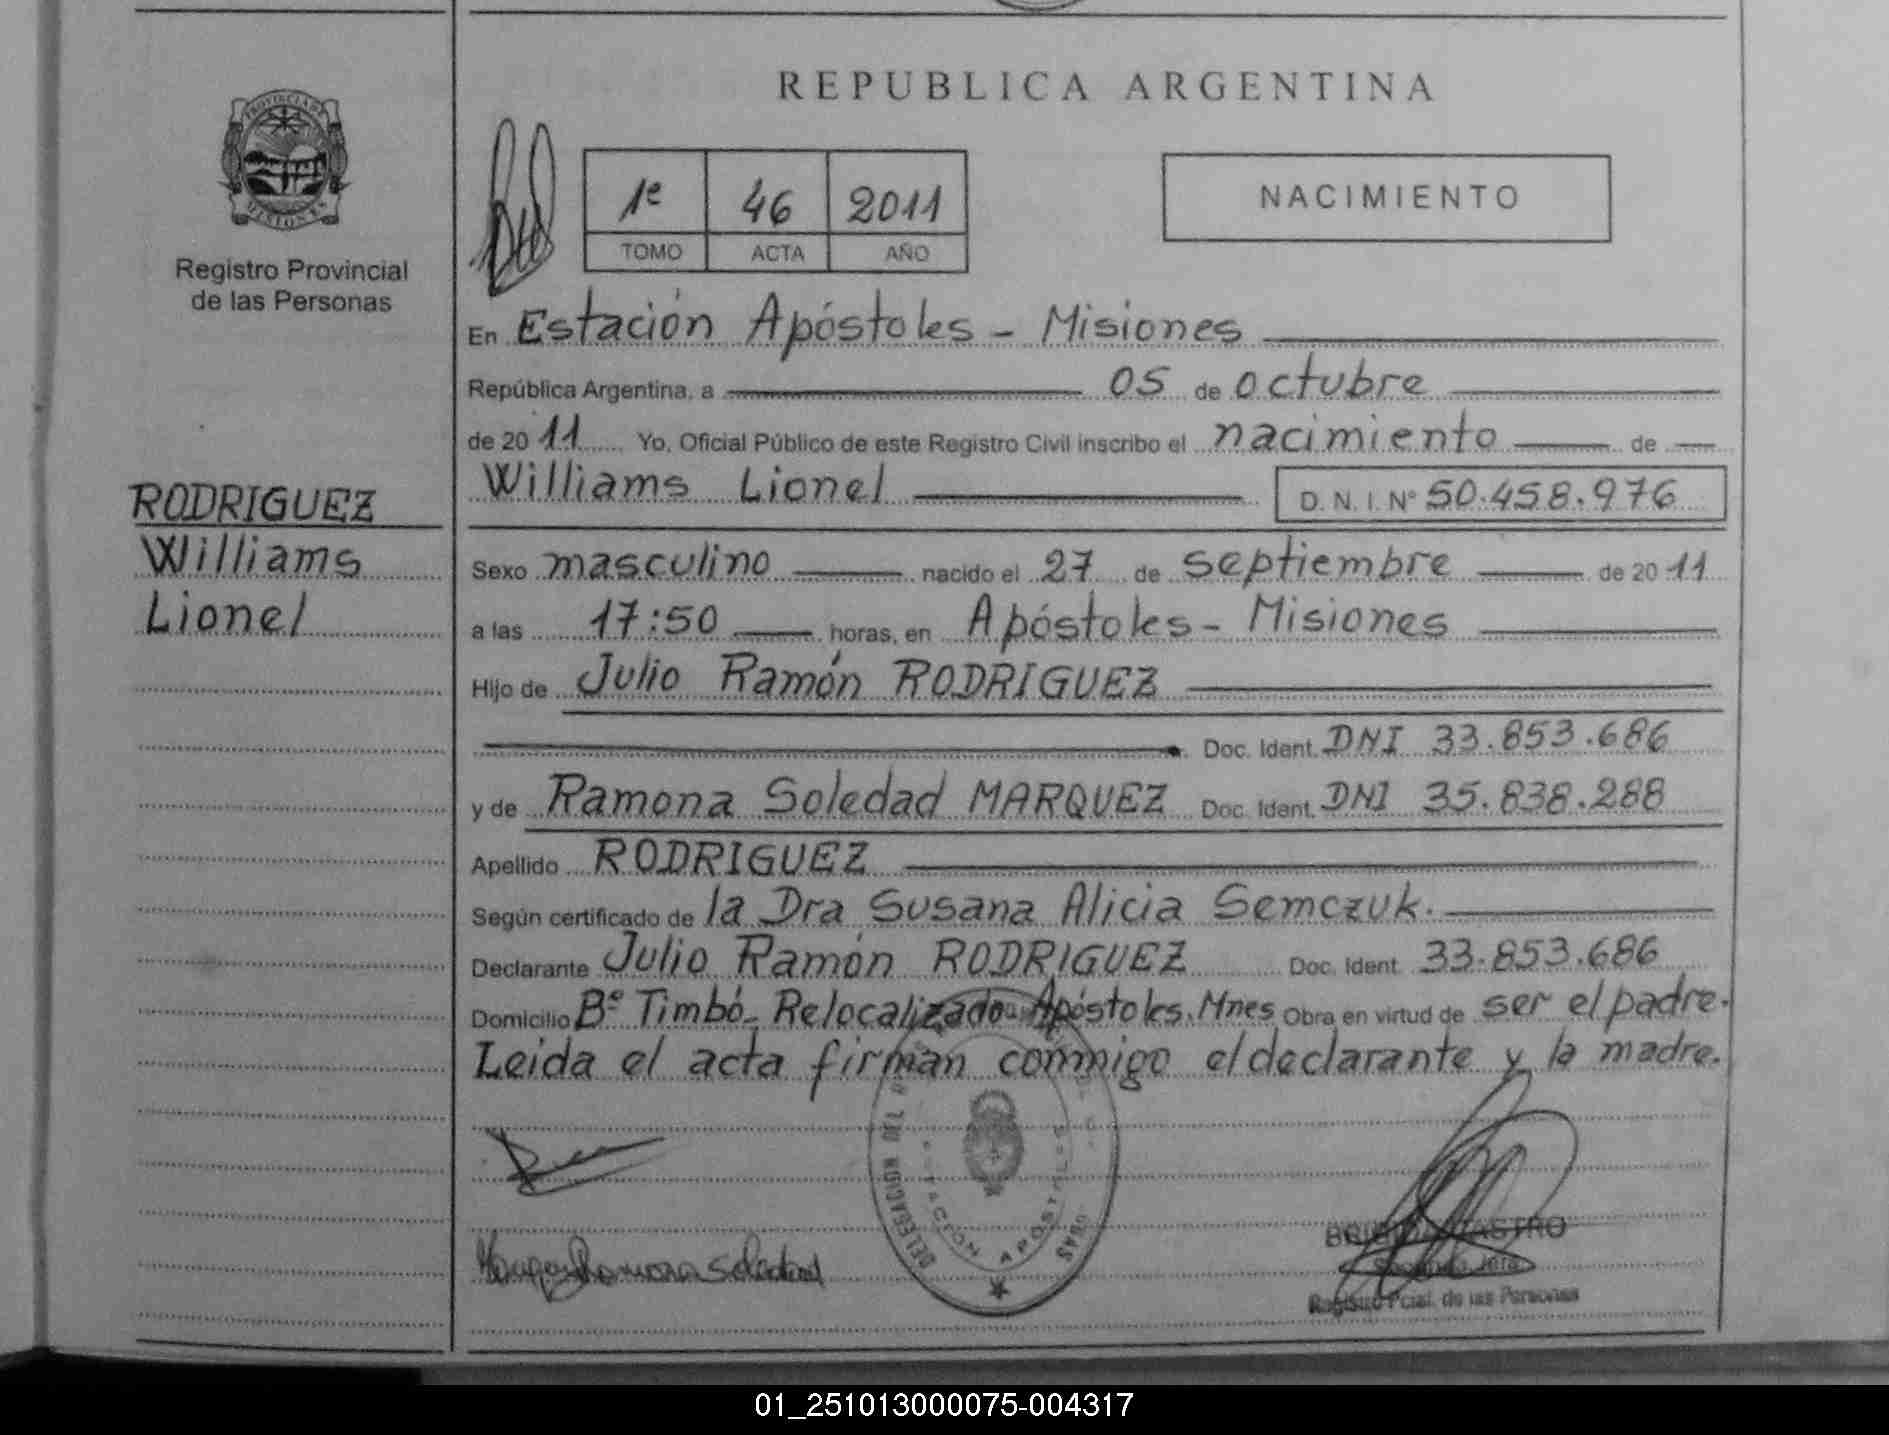 REPUBLICA ARGENTINA
PROVINCIA DE
MISIONES
Registro Provincial
de las Personas
1º 46 2011
TOMO ACTA AÑO
NACIMIENTO
En Estación Apóstoles - Misiones
República Argentina, a 05 de octubre
de 2011 Yo, Oficial Público de este Registro Civil inscribo el nacimiento de
Williams Lionel D. N. I. Nº 50.458.976
RODRIGUEZ
Williams
Lionel
Sexo masculino nacido el 27 de septiembre de 2011
a las 17:50 horas, en Apóstoles - Misiones
Hijo de Julio Ramón RODRIGUEZ
Doc. Ident. DNI 33.853.686
y de Ramona Soledad MARQUEZ Doc. Ident. DNI 35.838.288
Apellido RODRIGUEZ
Según certificado de la Dra Susana Alicia Semczuk.
Declarante Julio Ramón RODRIGUEZ Doc. Ident 33.853.686
Domicilio Bº Timbó - Relocalizado Apóstoles. Mnes Obra en virtud de ser el padre.
Leida el acta firman conmigo el declarante y la madre.
DELEGACION
ESTACION APOSTOLES
Ramona Soledad
Registro Pcial. de las Personas
01_251013000075-004317